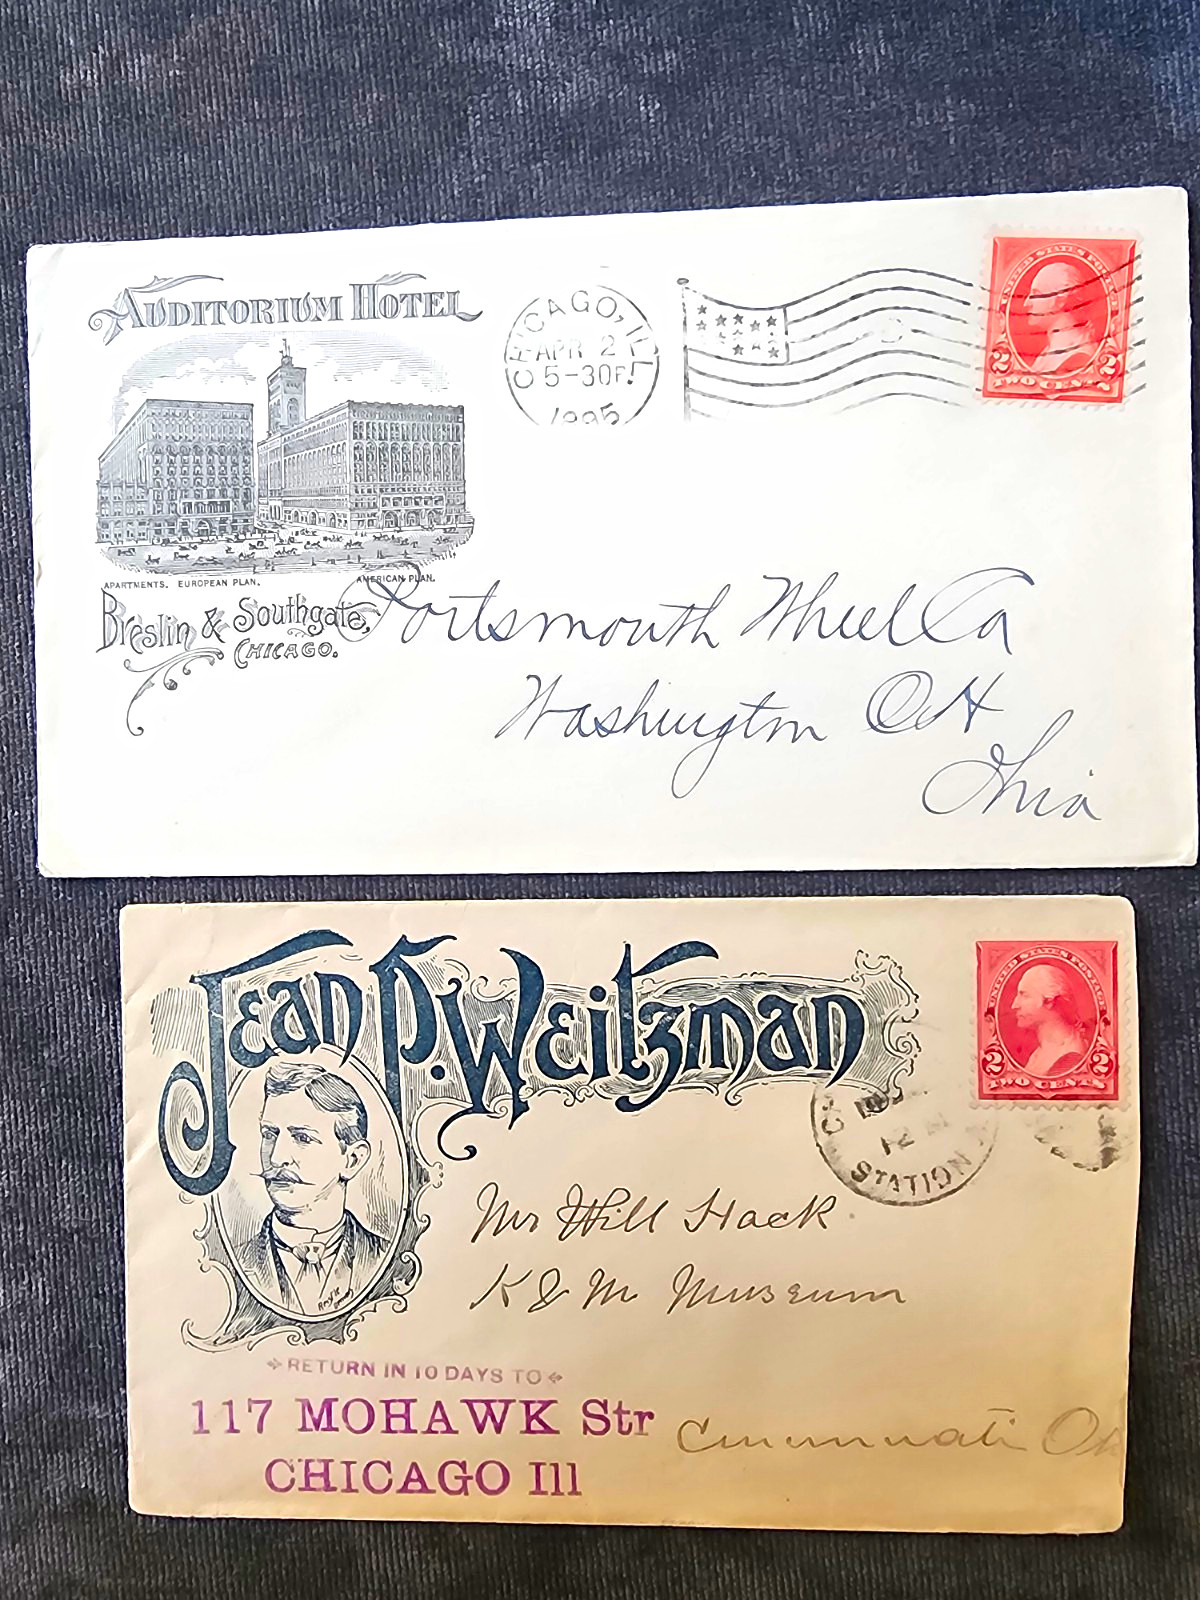 AUDITORIUM HOTEL
CHICAGO, ILL
APR 2
5-30P.
1895
UNITED STATES POSTAGE
2 2
TWO CENTS
APARTMENTS. EUROPEAN PLAN.
AMERICAN PLAN.
Breslin & Southgate,
CHICAGO.
Portsmouth Wheel Co
Washington CH
Ohio
Jean P. Weitzman
UNITED STATES POSTAGE
2 2
TWO CENTS
12 M
STATION
Mr Will Hack
K & M Museum
RETURN IN 10 DAYS TO
117 MOHAWK Str
CHICAGO Ill
Cincinnati